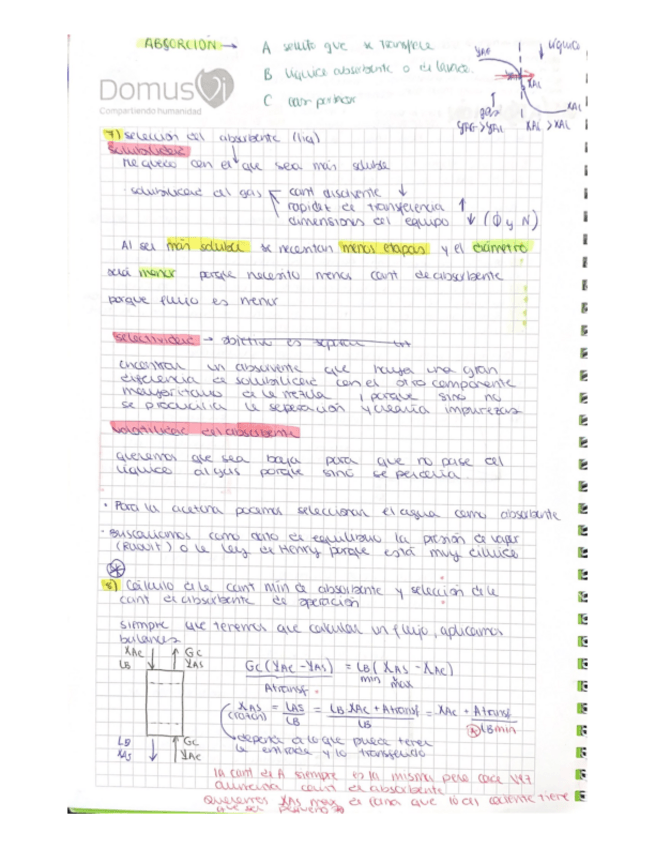 ABSORCIÓN → A soluto que se transfiere
B líquido absorbente o de lavado.
C gas portador
líquido
YAG
XAL
XAL
gas
YAG > YAL XAL > XAL
DomusVi
Compartiendo humanidad
7) selección del absorbente (liq)
solubilidad
me quedo con el que sea más soluble
· solubilidad del gas cant disolvente ↓
rapidez de transferencia ↑
dimensiones del equipo ↓ (Φ y N)
Al ser más soluble se necesitan menos etapas y el diámetro
será menor porque necesito menos cant de absorbente
porque flujo es menor
selectividad → objetivo es separar
encontrar un absorvente que haya una gran
diferencia de solubilidad con el otro componente
mayoritario de la mezcla, porque sino no
se produciría la separación y crearía impurezas
volatilidad del absorbente
queremos que sea baja para que no pase del
líquido al gas porque sino se perdería.
· Para la acetona podemos seleccionar el agua como absorbente
· Buscaríamos como dato de equilibrio la presión de vapor
(Raoult) o la ley de Henry porque está muy diluido
8) Cálculo de la cant min de absorbente y selección de la
cant de absorbente de operación
siempre que tenemos que calcular un flujo, aplicamos
balances
XAC GC
LB YAS
GC (YAC - YAS) = LB (XAS - XAC)
min max
Atransf
XAS = LAS/LB = LB·XAC + Atransf/LB = XAC + Atransf/LBmin
depende de lo que puede tener
la entrada y lo transferido
LB GC
XAS YAC
la cant de A siempre es la misma pero cada vez
aumenta cant de absorbente
Queremos XAS max de forma que lo del cociente tiene
que ser pequeño